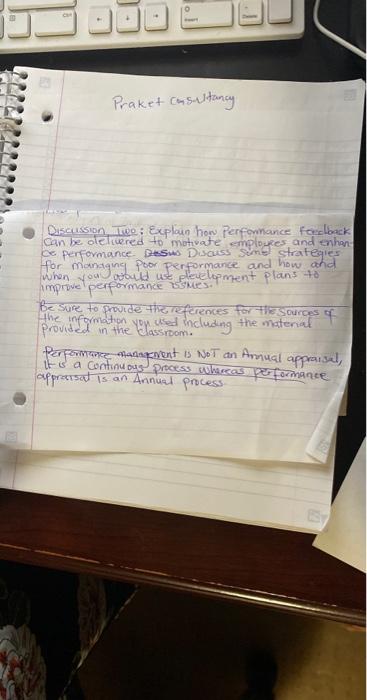 Ctrl
Insert
Delete
Praket Consultancy
Discussion Two: Explain how Performance Feedback
can be delivered to motivate employees and enhan-
ce performance. Discuss some strategies
for managing poor performance and how and
when you would use development plans to
improve performance issues.
Be sure to provide the references for the sources of
the information you used including the material
provided in the classroom.
Performance management is NOT an Annual appraisal,
it is a continuous process whereas performance
appraisal is an Annual process.